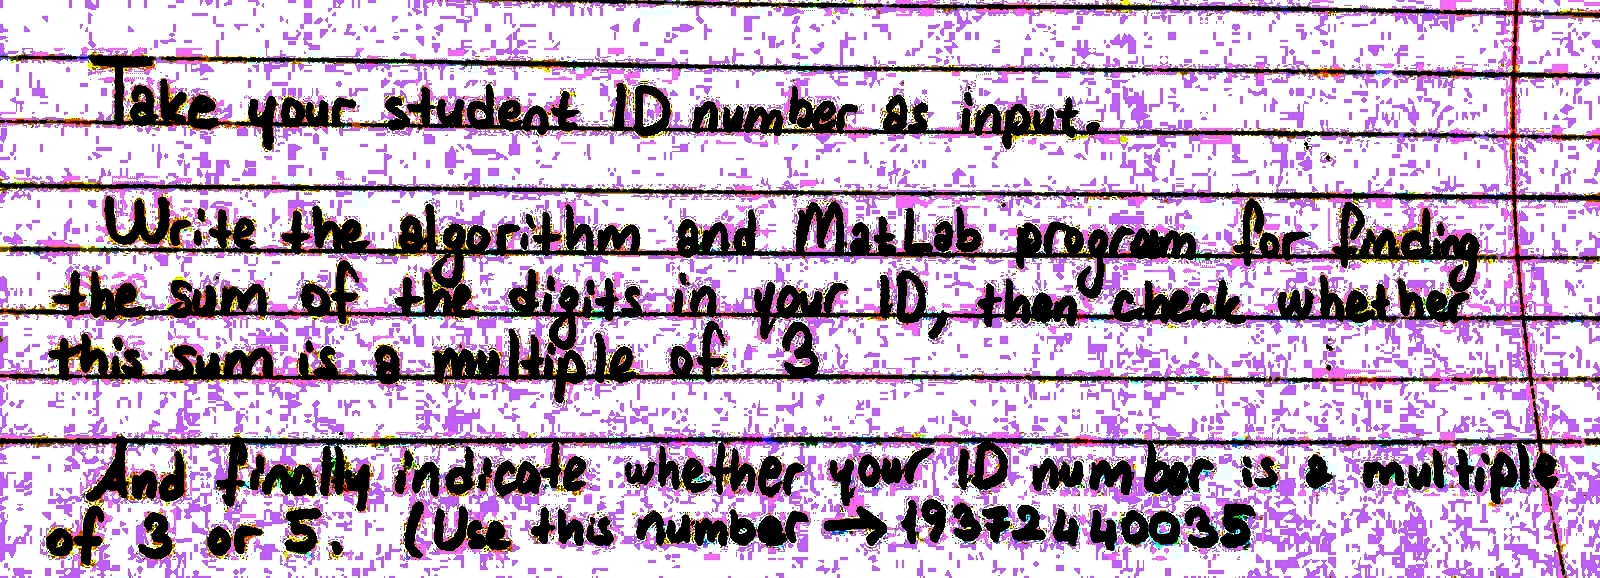 Take your student ID number as input.
Write the algorithm and MatLab program for finding
the sum of the digits in your ID, then check whether
this sum is a multiple of 3
And finally indicate whether your ID number is a multiple
of 3 or 5. (Use this number → 19372440035